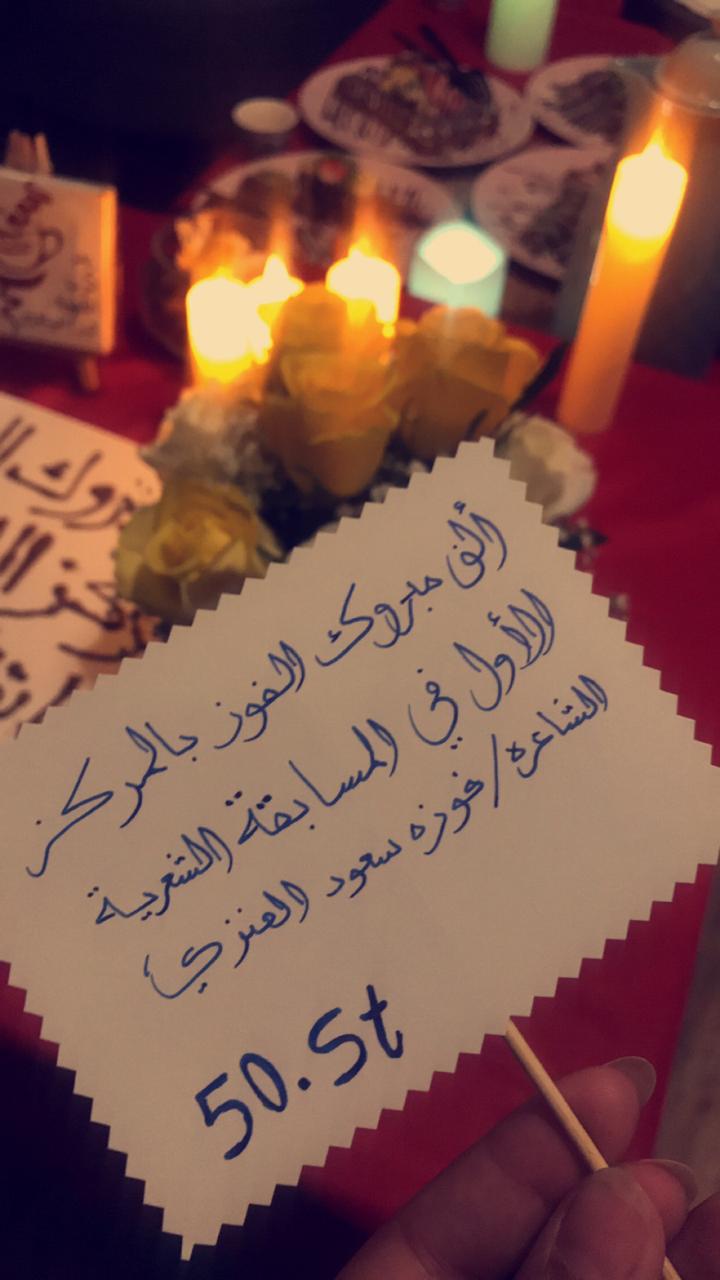 ألف مبروك الفوز بالمركز
الأول في المسابقة الشعرية
الشاعرة/فوزه سعود العنزي
50.St
مبروك